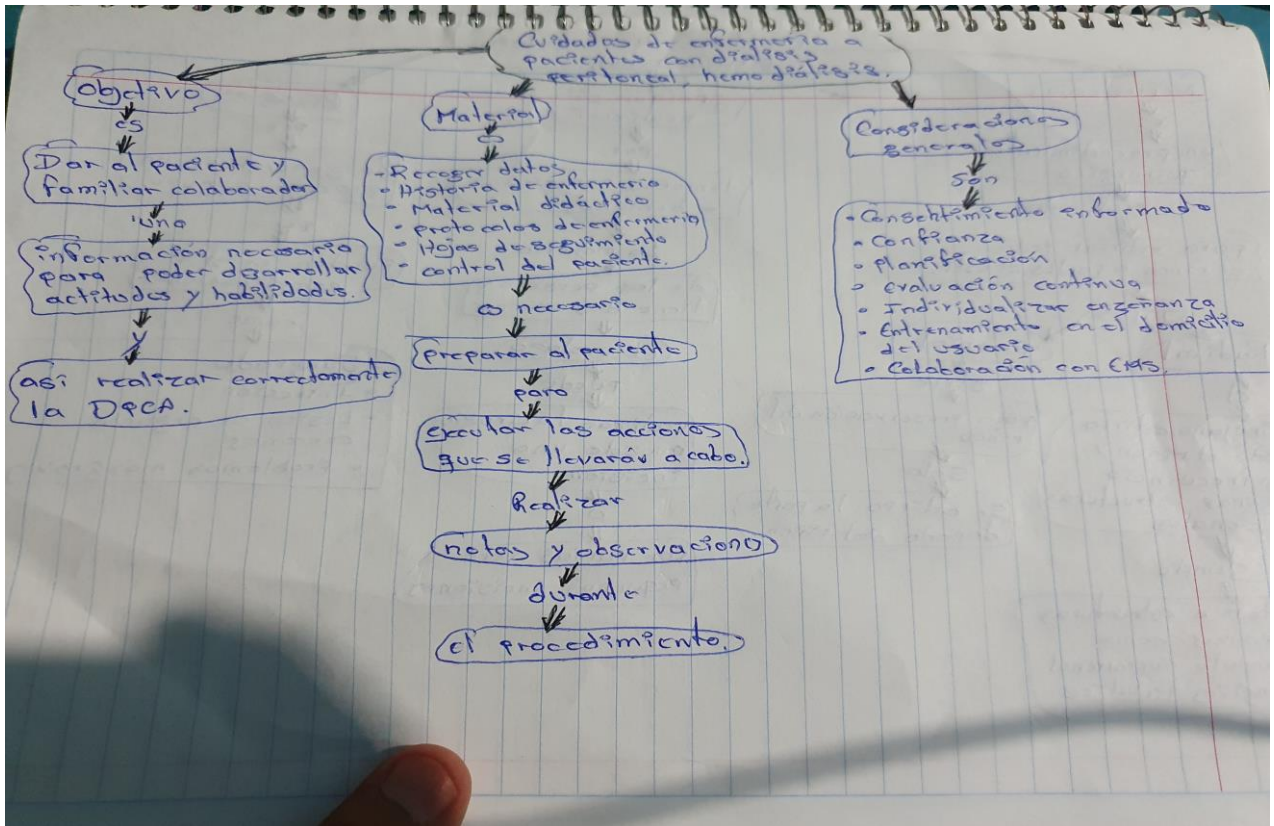 Cuidados de enfermería a
pacientes con dialisis
peritoneal, hemodiálisis.
Objetivo
es
Dar al paciente y
familiar colaborador
una
información necesaria
para poder desarrollar
actitudes y habilidades.
y
así realizar correctamente
la DPCA.
Material
es
- Recoger datos
- Historia de enfermería
- Material didáctico
- protocolos de enfermería
- Hojas de seguimiento
- control del paciente.
es necesario
preparar al paciente
para
ejecutar las acciones
que se llevarán a cabo.
Realizar
notas y observaciones
durante
el procedimiento.
Consideraciones
generales
son
- Consentimiento informado
- Confianza
- planificación
- evaluación continua
- Individualizar enseñanza
- Entrenamiento en el domicilio
del usuario
- Colaboración con